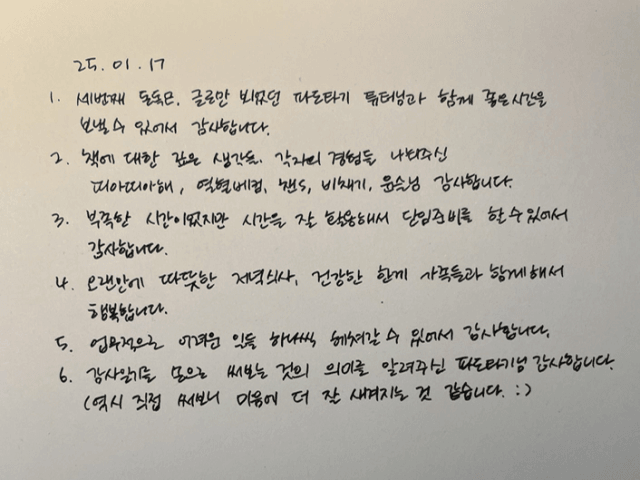 25.01.17
1. 세번째 돈독모. 글로만 뵈었던 파도타기 튜터님과 함께 좋은시간을
보낼 수 있어서 감사합니다.
2. 책에 대한 깊은 생각들. 각자의 경험들 나눠주신
띠아띠아해, 열혈베컴, 짼s, 비채기, 윤슬님 감사합니다.
3. 부족한 시간이었지만 시간을 잘 활용해서 단임준비를 할 수 있어서
감사합니다.
4. 오랜만에 따뜻한 저녁식사, 건강한 한끼 가족들과 함께해서
행복합니다.
5. 업무적으로 어려운 일들 하나씩 헤쳐갈 수 있어서 감사합니다.
6. 감사일기를 손으로 써보는 것의 의미를 알려주신 파도타기님 감사합니다.
(역시 직접 써보니 마음에 더 잘 새겨지는 것 같습니다. :)